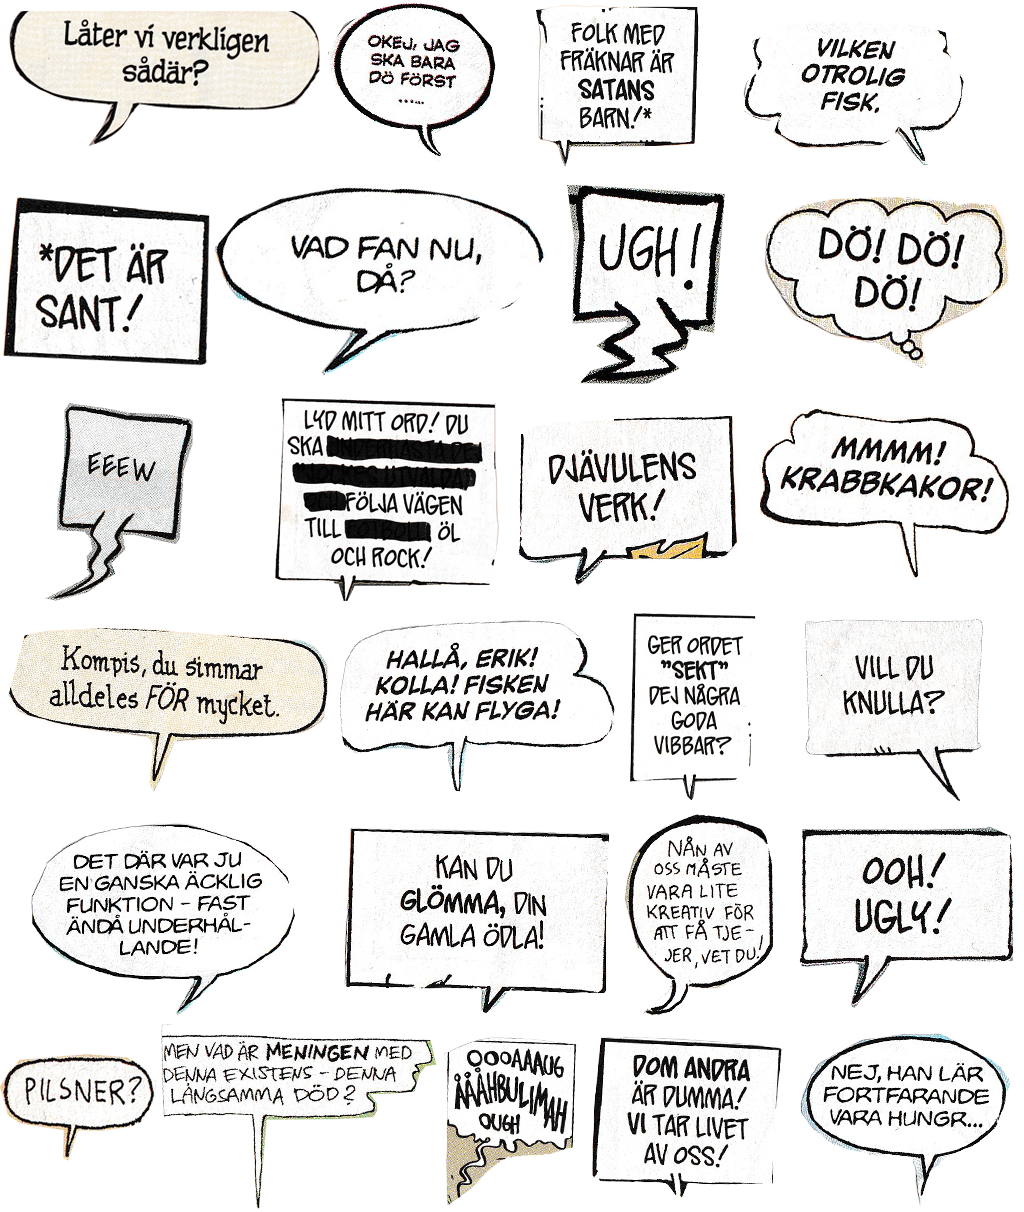 Låter vi verkligen
sådär?
OKEJ, JAG
SKA BARA
DÖ FÖRST
......
FOLK MED
FRÄKNAR ÄR
SATANS
BARN!*
VILKEN
OTROLIG
FISK.
*DET ÄR
SANT!
VAD FAN NU,
DÅ?
UGH!
DÖ! DÖ!
DÖ!
EEEW
LYD MITT ORD! DU
SKA
FÖLJA VÄGEN
TILL ÖL
OCH ROCK!
DJÄVULENS
VERK!
MMMM!
KRABBKAKOR!
Kompis, du simmar
alldeles FÖR mycket.
HALLÅ, ERIK!
KOLLA! FISKEN
HÄR KAN FLYGA!
GER ORDET
"SEKT"
DEJ NÅGRA
GODA
VIBBAR?
VILL DU
KNULLA?
DET DÄR VAR JU
EN GANSKA ÄCKLIG
FUNKTION – FAST
ÄNDÅ UNDERHÅL-
LANDE!
KAN DU
GLÖMMA, DIN
GAMLA ÖDLA!
NÅN AV
OSS MÅSTE
VARA LITE
KREATIV FÖR
ATT FÅ TJE-
JER, VET DU!
OOH!
UGLY!
PILSNER?
MEN VAD ÄR MENINGEN MED
DENNA EXISTENS – DENNA
LÅNGSAMMA DÖD?
OOOAAAUG
ÅÄÅHBULIMAH
OUGH
DOM ANDRA
ÄR DUMMA!
VI TAR LIVET
AV OSS!
NEJ, HAN LÄR
FORTFARANDE
VARA HUNGR...